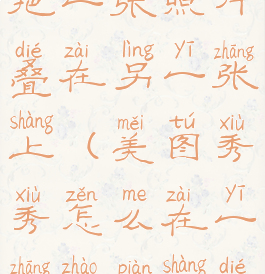 把一张照片
dié zài lìng yī zhāng
叠在另一张
shàng měi tú xiù
上（美图秀
xiù zěn me zài yī
秀怎么在一
zhāng zhào piàn shàng dié